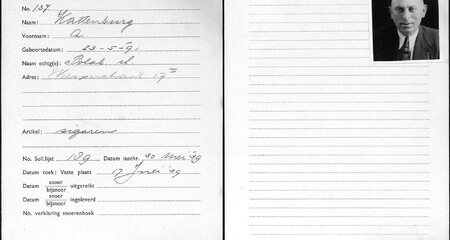 No. 137
Naam: Wattenburg
Voornaam: A
Geboortedatum: 23-5-'91
Naam echtg(e): Polak
Adres: 17 II
Artikel: sigaren
No. Soll.lijst 189 Datum inschr. 30 Mei '39
Datum toek: Vaste plaats 2 Juni '39
Datum snoer bijsnoer uitgereikt
Datum snoer bijsnoer ingeleverd
No. verklaring snoerenboek